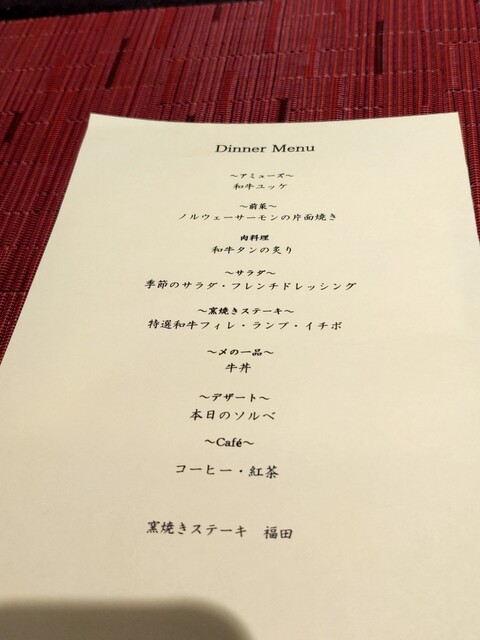 Dinner Menu
～アミューズ～
和牛ユッケ
～前菜～
ノルウェーサーモンの片面焼き
肉料理
和牛タンの炙り
～サラダ～
季節のサラダ・フレンチドレッシング
～窯焼きステーキ～
特選和牛フィレ・ランプ・イチボ
～〆の一品～
牛丼
～デザート～
本日のソルベ
～Café～
コーヒー・紅茶
窯焼きステーキ　福田